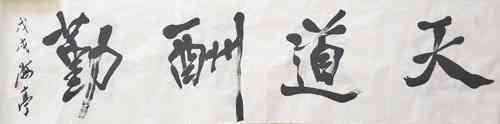 天道酬勤
戊戌海亭